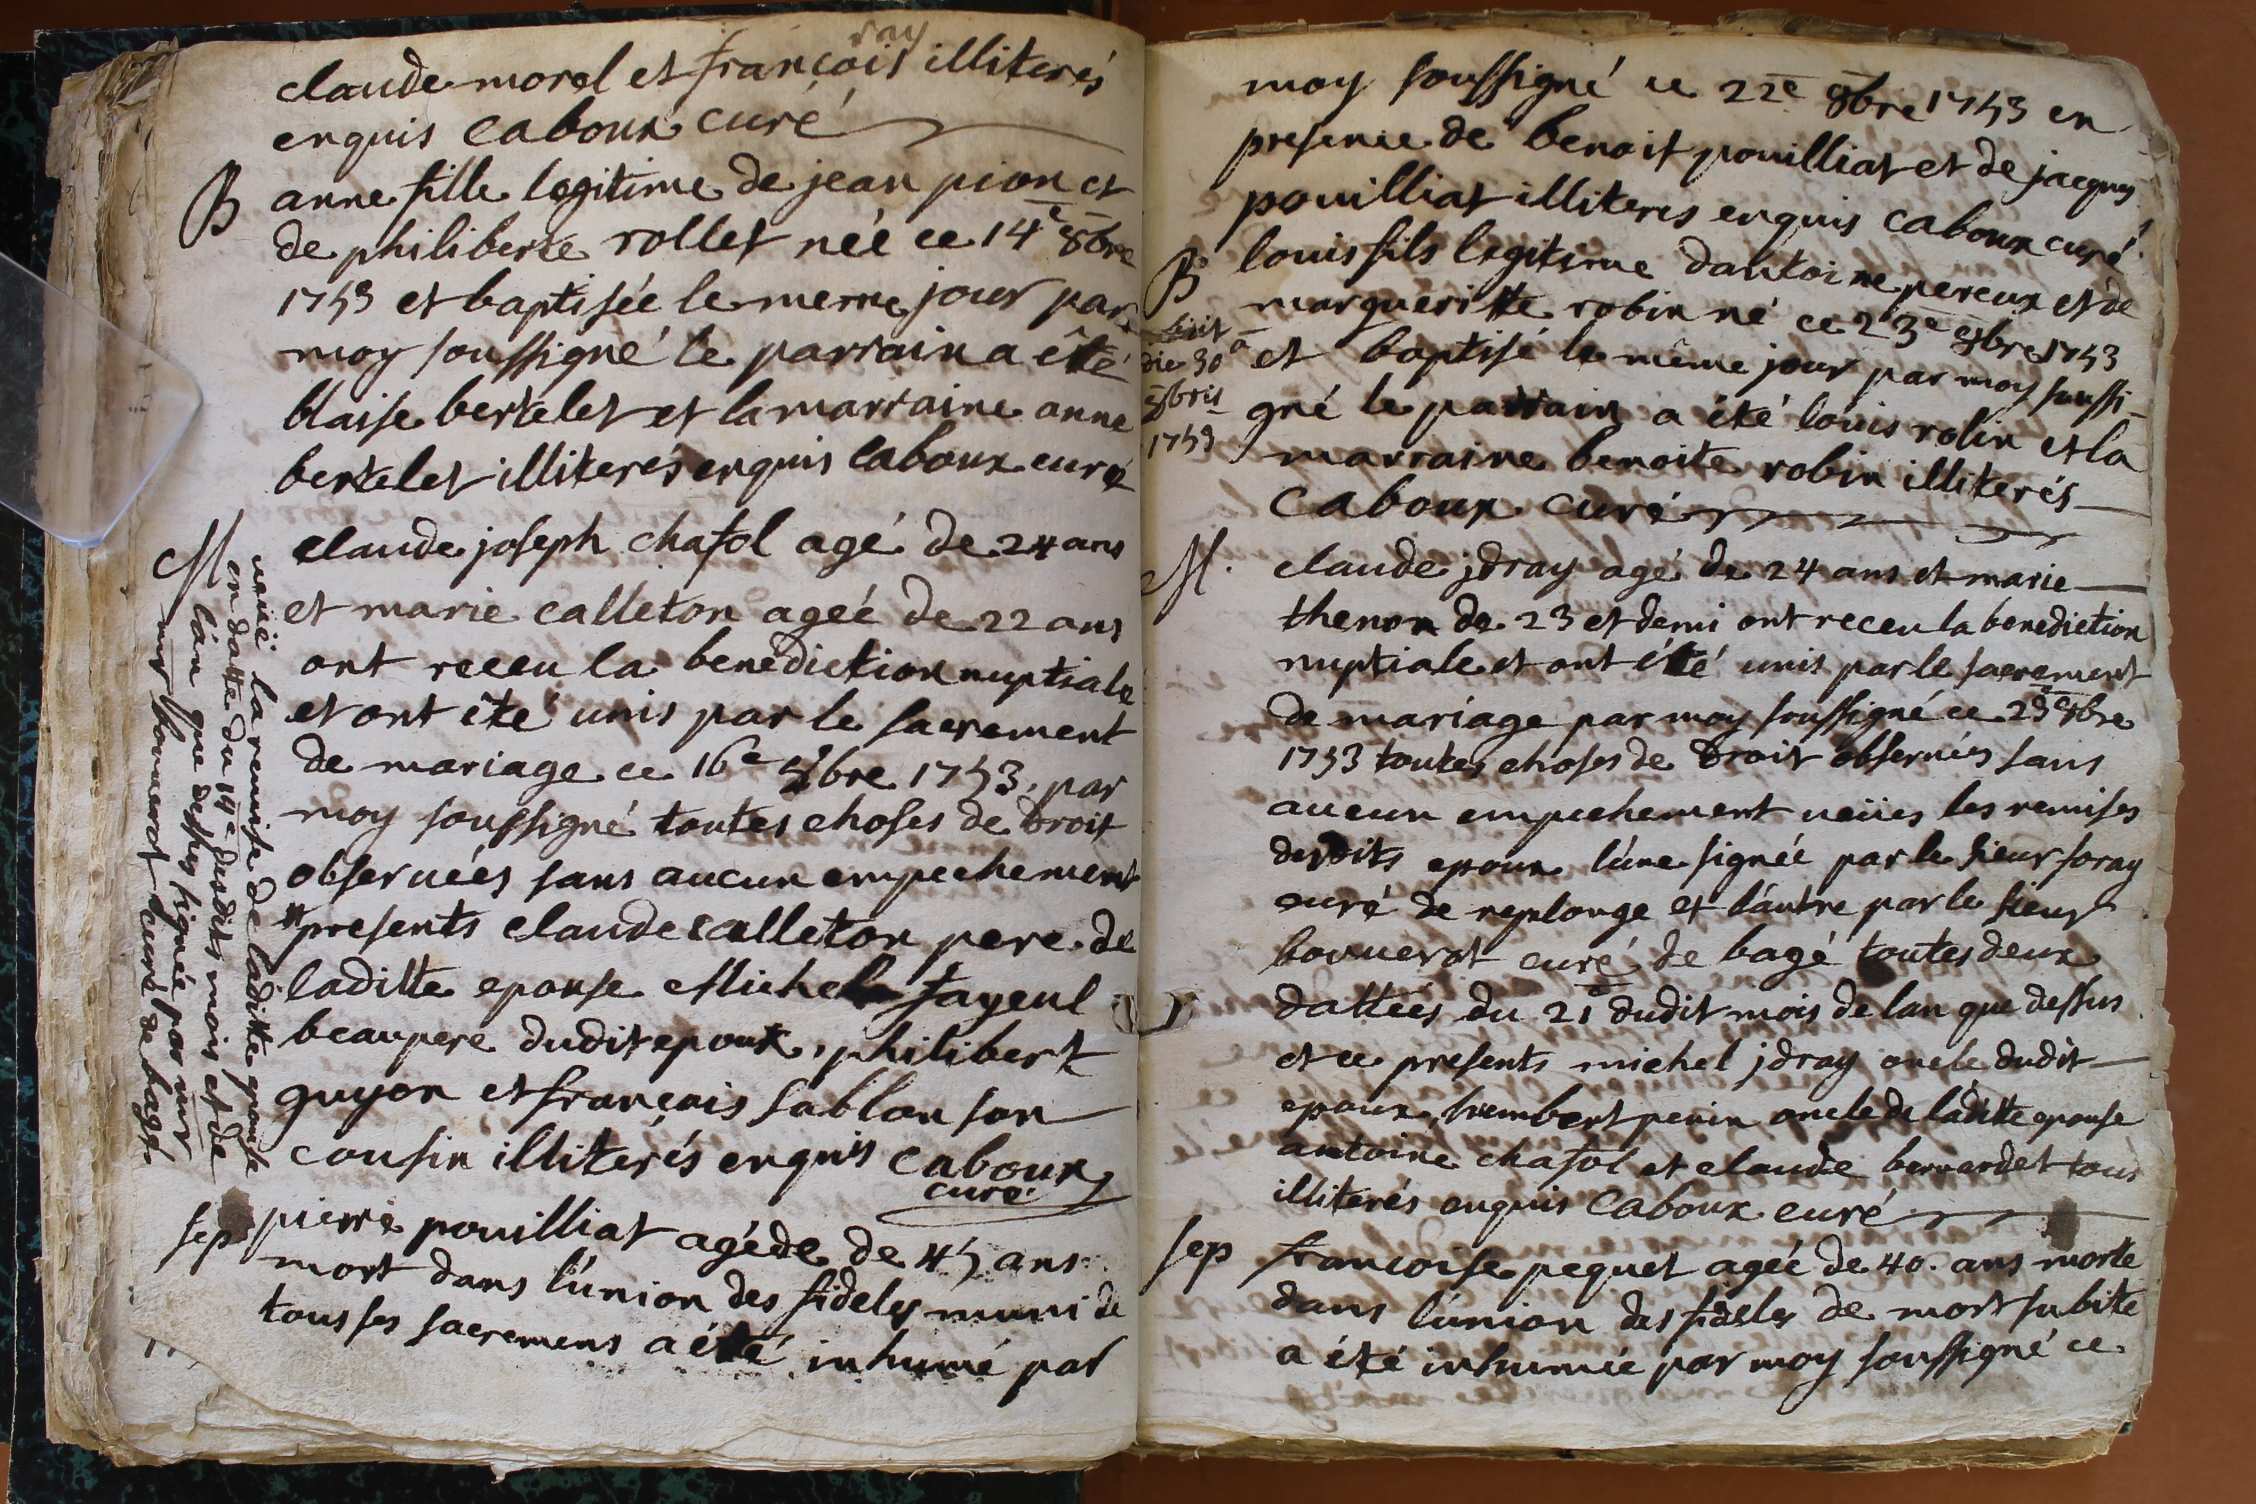 claude morel et françois ray illiterés
enquis caboux curé
B anne fille legitime de jean pion et
de philiberte rollet née ce 14e 8bre
1753 et baptisée le meme jour par
moy soussigné le parrain a été
blaise bertelet et la marraine anne
bertelet illiterés enquis caboux curé
M claude joseph chafol agé de 24 ans
et marie calleton ageé de 22 ans
ont receu la benediction nuptiale
et ont été unis par le sacrement
de mariage ce 16e 8bre 1753, par
moy soussigné toutes choses de droit
observées sans aucun empechement
# presents claude calleton pere de
laditte epouse Michel fayeul
beaupere dudit epoux, philibert
guyon et françois sablon son
cousin illiterés enquis caboux
curé
veüe la remise de laditte epouse
en datte du 14e desdits mois et de
lán que dessus signée par mr
mr bouuerot curé de bagé
sep pierre pouilliat agéde de 45 ans
mort dans l'union des fideles muni de
tous ses sacremens a été inhumé par
moy soussigné ce 22e 8bre 1753 en
presence de benoit pouilliat et de jacques
pouilliat illiteres enquis caboux curé
B louis fils legitime dantoine pereux et de
margueritte robin né ce 23e 8bre 1753
et baptisé le même jour par moy soussi-
gné le parrain a été louis robin et la
marraine benoite robin illiterés
caboux curé
die 30a
8bris
1753
M. claude jdray agé de 24 ans et marie
thenon de 23 et demi ont receu la benediction
nuptiale et ont été unis par le sacrement
de mariage par moy soussigné ce 23e 8bre
1753 toutes choses de droit observées sans
aucun empechement veües les remises
desdits epoux l'une signée par le sieur foray
curé de replonge et l'autre par le sieur
bouuerot curé de bagé toutes deux
dattées du 21e dudit mois de lan que dessus
et ce presents michel jdray oncle dudit
epoux, humbert penin oncle de laditte epouse
antoine chafol et claude bernardet tous
illiterés enquis caboux curé
sep francoise pequet ageé de 40. ans morte
dans l'union des fideles de mort subite
a été inhumée par moy soussigné ce